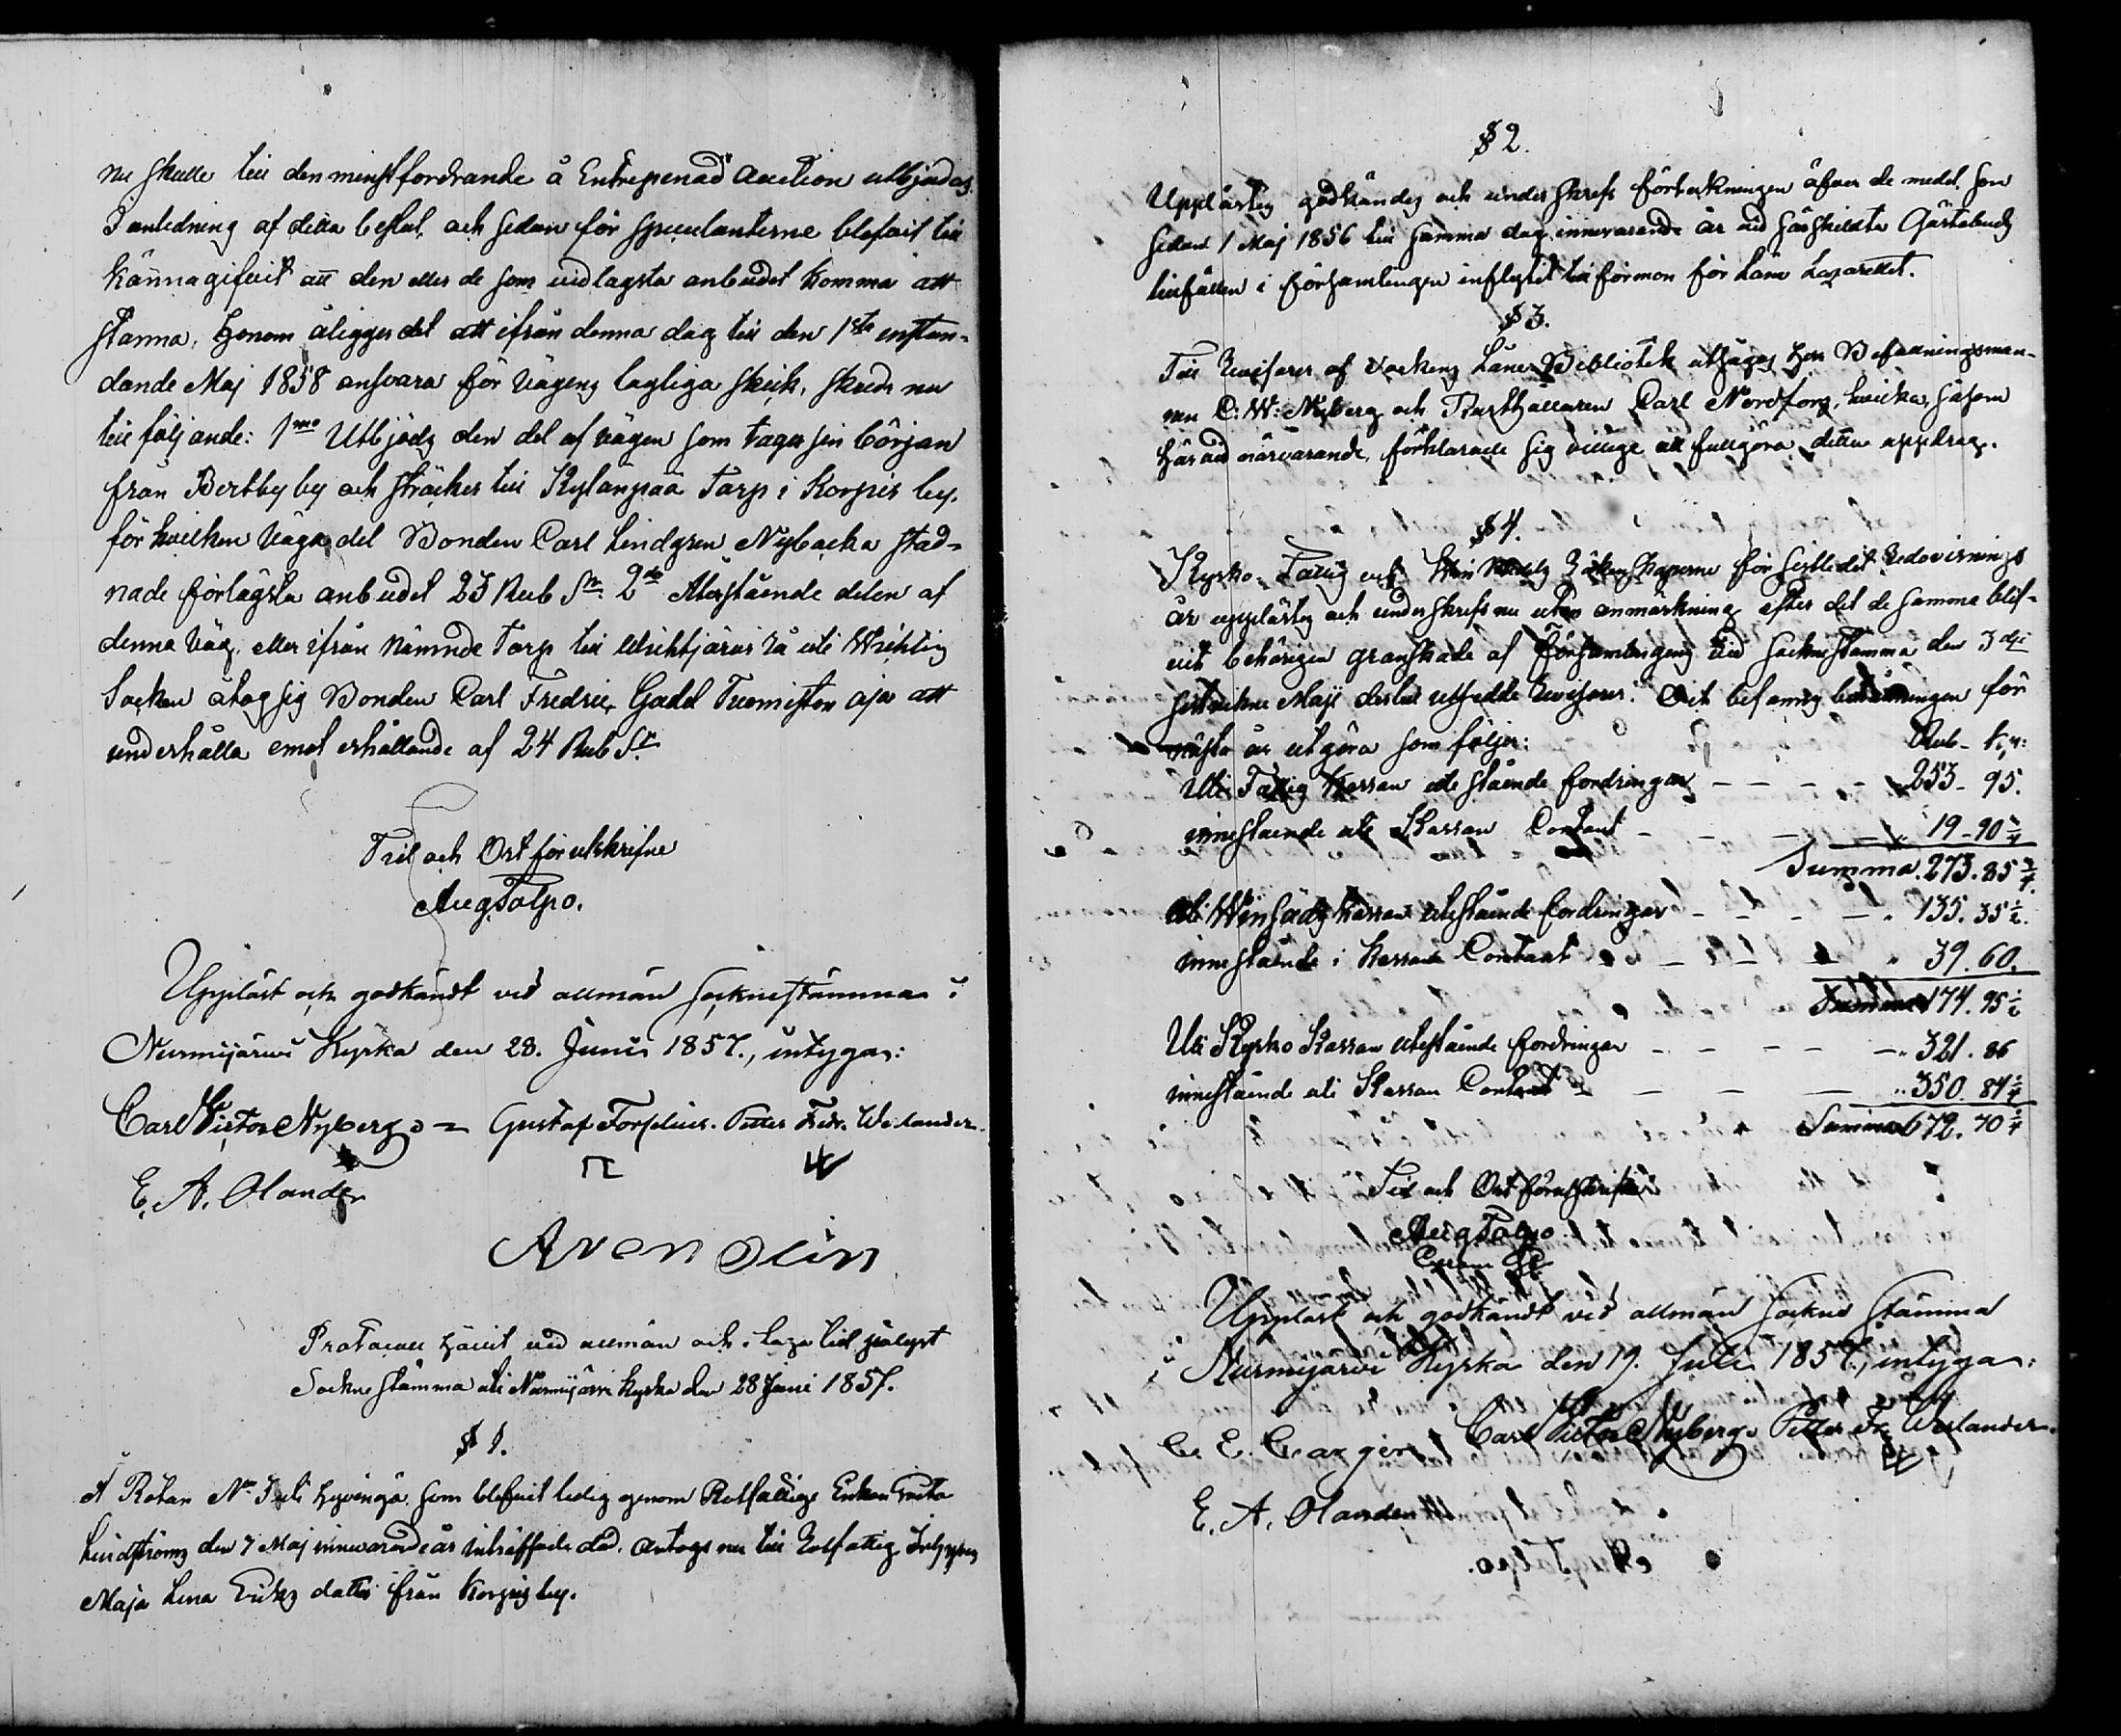 nu skulle till den minstfordrande å Entrepenad Auction utbjudas.
I anledning af detta beslut, och sedan för speculanterne blefvit till
kännagifvit att den eller de som vid lägsta anbudet komma att
stanna, honom åligger det att ifrån denna dag till den 1ste instun-
dande Maj 1858 ansvara för vägens lagliga skick, skedde nu
till följande: 1mo Utbjöds den del af vägen som tager sin början
från Bertby by och sträcker till Kylänpää Torp i Korpis by.
för hvilken vägadel Bonden Carl Lindgren Nybacka stad-
nade för lägsta anbudet 23 Rub Sr. 2do Återstående delen af
denna väg, eller ifrån nämnde Torp till rå uti Wichtis
Socken åtog sig Bonden Carl Fredric Gadd Tuomiston aja att
underhålla emot erhållande af 24 Rub Sr.
Tid och Ort förutskrifne
Aug Talpo.
Uppläst och godkändt vid allmän socknestämma i
Nurmijärvi Kyrka den 28. Junii 1857., intygar:
Carl Victor Nyberg Gustaf Forselius. Petter Fedr. Welander.
E. A. Olander
Aron Olin
Protocoll hållit vid allmän och i laga tid pålyst
Sockne stämma uti Nurmijärvi Kyrka den 28 Juni 1857.
§ 1.
Å Rotan No uti Hyvingä som blefvit ledig genom Rotfattige Enkan
Lindströms den 7 Maj innevarande år inträffade död, antogs nu till Rotfattig Inhyses
Maja Lena Eriks dotter ifrån Korpis by.
§ 2.
Upplästes godkändes och underskrefs förteckningen öfver de medel, som
sedan 1 Maj 1856 till samma dag innevarande år vid särskildta Gästabuds
tillfällen i församlingen influtit till förmon för Läns Lazarettet.
§ 3.
Till Revisorer af Sockens Låne Bibliotek utsågos Herr Befallningsman-
nen C: W: Nyberg och Rusthållaren Carl Nordfors, hvilka, såsom
härvid närvarande, förklarade sig villige att fullgöra detta uppdrag.
§ 4.
Kyrko, Fattig och Räkenskaperne för sistledit Redovisnings
år upplästes och underskrefs nu utan anmärkning, efter det de samma blif-
vit behörigen granskade af Församlingens vid Sockne stämma den 3dje
sistvikne Maji dertill utsedde Revisorer. Och befanns behållningen för
nästa år utgöra som följer: Rub. Kop:
Uti Fattig Kassan utestående fordringar 253 - 95.
innestående uti Kassan Contant 19 - 90 3/4
Summa. 273. 85 3/4.
Uti Kassan utestående fordringar 135. 35 1/2.
innestående i Kassan Contant 39. 60.
Summa 174. 95 1/2
Uti Kyrko Kassan utestående fordringar 321. 86
innestående uti Kassan Contant 350. 84 1/4
Summa 672. 70 1/4
Tid och Ort förutskrifne
Aug Talpo
Uppläst och godkändt vid allmän Sockne stämma
i Nurmijärvi Kyrka den 19. Juli 1857., intygar:
Carl Victor Nyberg. Petter Fr. Welander.
E. A. Olander